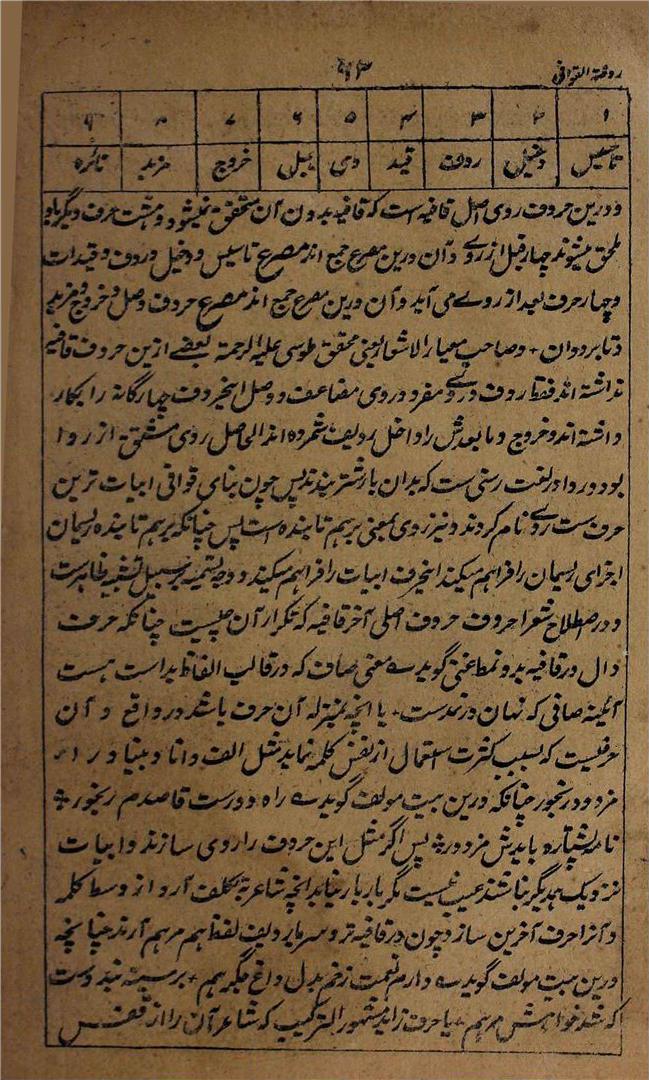 روضة القوافی
۹۳
۱ ۲ ۳ ۴ ۵ ۶ ۷ ۸ ۹
تاسیس دخیل ردف قید روی وصل خروج مزید نائره
و درین حروف روی اصل قافیه است که قافیه بدون آن متحقق نمیشود و هشت حرف دیگر باو
ملحق میشوند چهار قبل از روے و آن درین مصرع جمع اند مصرع تاسیس و دخیل و ردف و قید است
و چهار حرف بعد از روے می آید و آن درین مصرع جمع اند مصرع حروف وصل و خروج و مزید
و نایره دان + و صاحب معیار الاشعار یعنی محقق طوسی علیه الرحمة بعضے ازین حروف قافیه
نداشته اند فقط ردف و روے مفرد و روی مضاعف و وصل اینحروف چهارگانه را بکار
داشته اند و خروج و ما بعدش را داخل ردیف شمرده اند الی اصل روی مشتق از روا
بود و روا در لغت رسنی ست که بدان بار شتر بندند پس چون بنای قوافی ابیات ترین
حرف ست روے نام کردند و نیز روی بمعنی برهم تابنده است پس چنانکه برهم تابنده ریسمان
اجزای ریسمان را فراهم میکند اینحرف ابیات را فراهم میکند و وجه تسمیه بر سبیل تشبیه ظاهرست
و در اصطلاح شعرا حروف حروف اصلی آخر قافیه که تکرار آن چیست چنانکه حرف
دال در قافیه بدو نمط غنی گوید سے معنی صاف که در قالب الفاظ بد است هست
آئینه صافی که نهان در نمد ست + یا انچه بمنزله آن حرف باشد در واقع و آن
حرفیست که بسبب کثرت استعمال از نفس کلمه نماید مثل الف دانا و بینا و را
مزدور و رنجور چنانکه درین بیت مولف گوید سے راه دورست قاصدم رنجور +
نامه پشتاره بایدش مزدور + پس اگر مثل این حروف را روی سازند و ابیات
نزدیک همدیگر نباشند عیب نیست مگر بار بار نباید انچه شاعر به تکلف آرد از وسط کلمه
و آنرا حرف آخرین سازد چون در قافیه تر و سر ما بر دیف لفظ هم مرهم آرند چنانچه
درین بیت مولف گوید سے دارم نعمت زخم بدل داغ جگر هم + بر سینه نبد دست
که شد خواهش مرهم + یا حرف زاید مشهور الترکیب که شاعر آن را از نفس